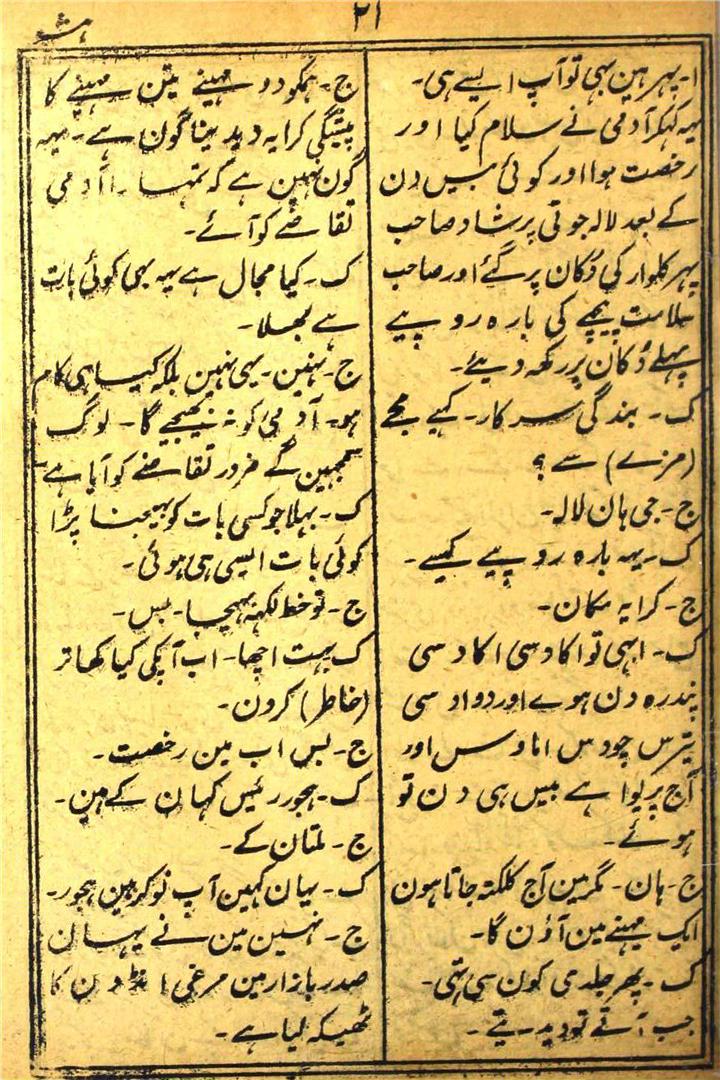 ۲۱
ہشو
ا۔ پہر ہین بہی تو آپ ایسے ہی۔
یہ کہکر آدمی نے سلام کیا اور
رخصت ہوا اور کوئی بیس دن
کے بعد لالہ جوتی پرشاد صاحب
پہر کلوار کی دُکان پر گئے اور صاحب
سلامت پیچھے کی بارہ روپیے
پہلے دُکان پر رکھ دیئے۔
ک۔ بندگی سرکار۔ کہیے مجے
(مزے) سے؟
ج۔ جی ہان لالہ۔
ک۔ یہہ بارہ روپیے کیسے۔
ج۔ کرایہ مکان۔
ک۔ ابہی تو اکادسی اکادسی
پندرہ دن ہوے اور دوادسی
تیرس چودس اماوس اور
آج پریوا ہے بیس ہی دن تو
ہوئے۔
ج۔ ہان۔ مگر مین آج کلکتہ جاتا ہون
ایک مہینے مین آؤن گا۔
ک۔ پھر جلدی کون سی تہی۔
جب آتے تو دیدیتے۔
ج۔ ہمکو دو مہینے تین مہینے کا
پیشگی کرایہ دیدینا گون ہے۔ یہہ
گون نہین ہے کہ تمہارا آدمی
تقاضے کو آئے۔
ک۔ کیا مجال ہے یہہ بہی کوئی بات
ہے بھلا۔
ج۔ نہین۔ یہی نہین بلکہ کیسا ہی کام
ہو۔ آدمی کو نہ بھیجیے گا۔ لوگ
سمجہین گے ضرور تقاضے کو آیا ہے۔
ک۔ بہلا جو کسی بات کو بھیجنا پڑا
کوئی بات ایسی ہی ہوئی۔
ج۔ تو خط لکھہ بھیجا۔ بس۔
ک بہت اچھا۔ اب آپکی کیا کھاتر
(خاطر) کرون۔
ج۔ بس اب مین رخصت۔
ک۔ ہجور رئیس کہان کے ہین۔
ج۔ ملتان کے۔
ک۔ یہان کہین آپ نوکر ہین ہجور۔
ج۔ نہین مین نے یہان
صدر بازار مین مرغی انڈون کا
ٹھیکہ لیا ہے۔